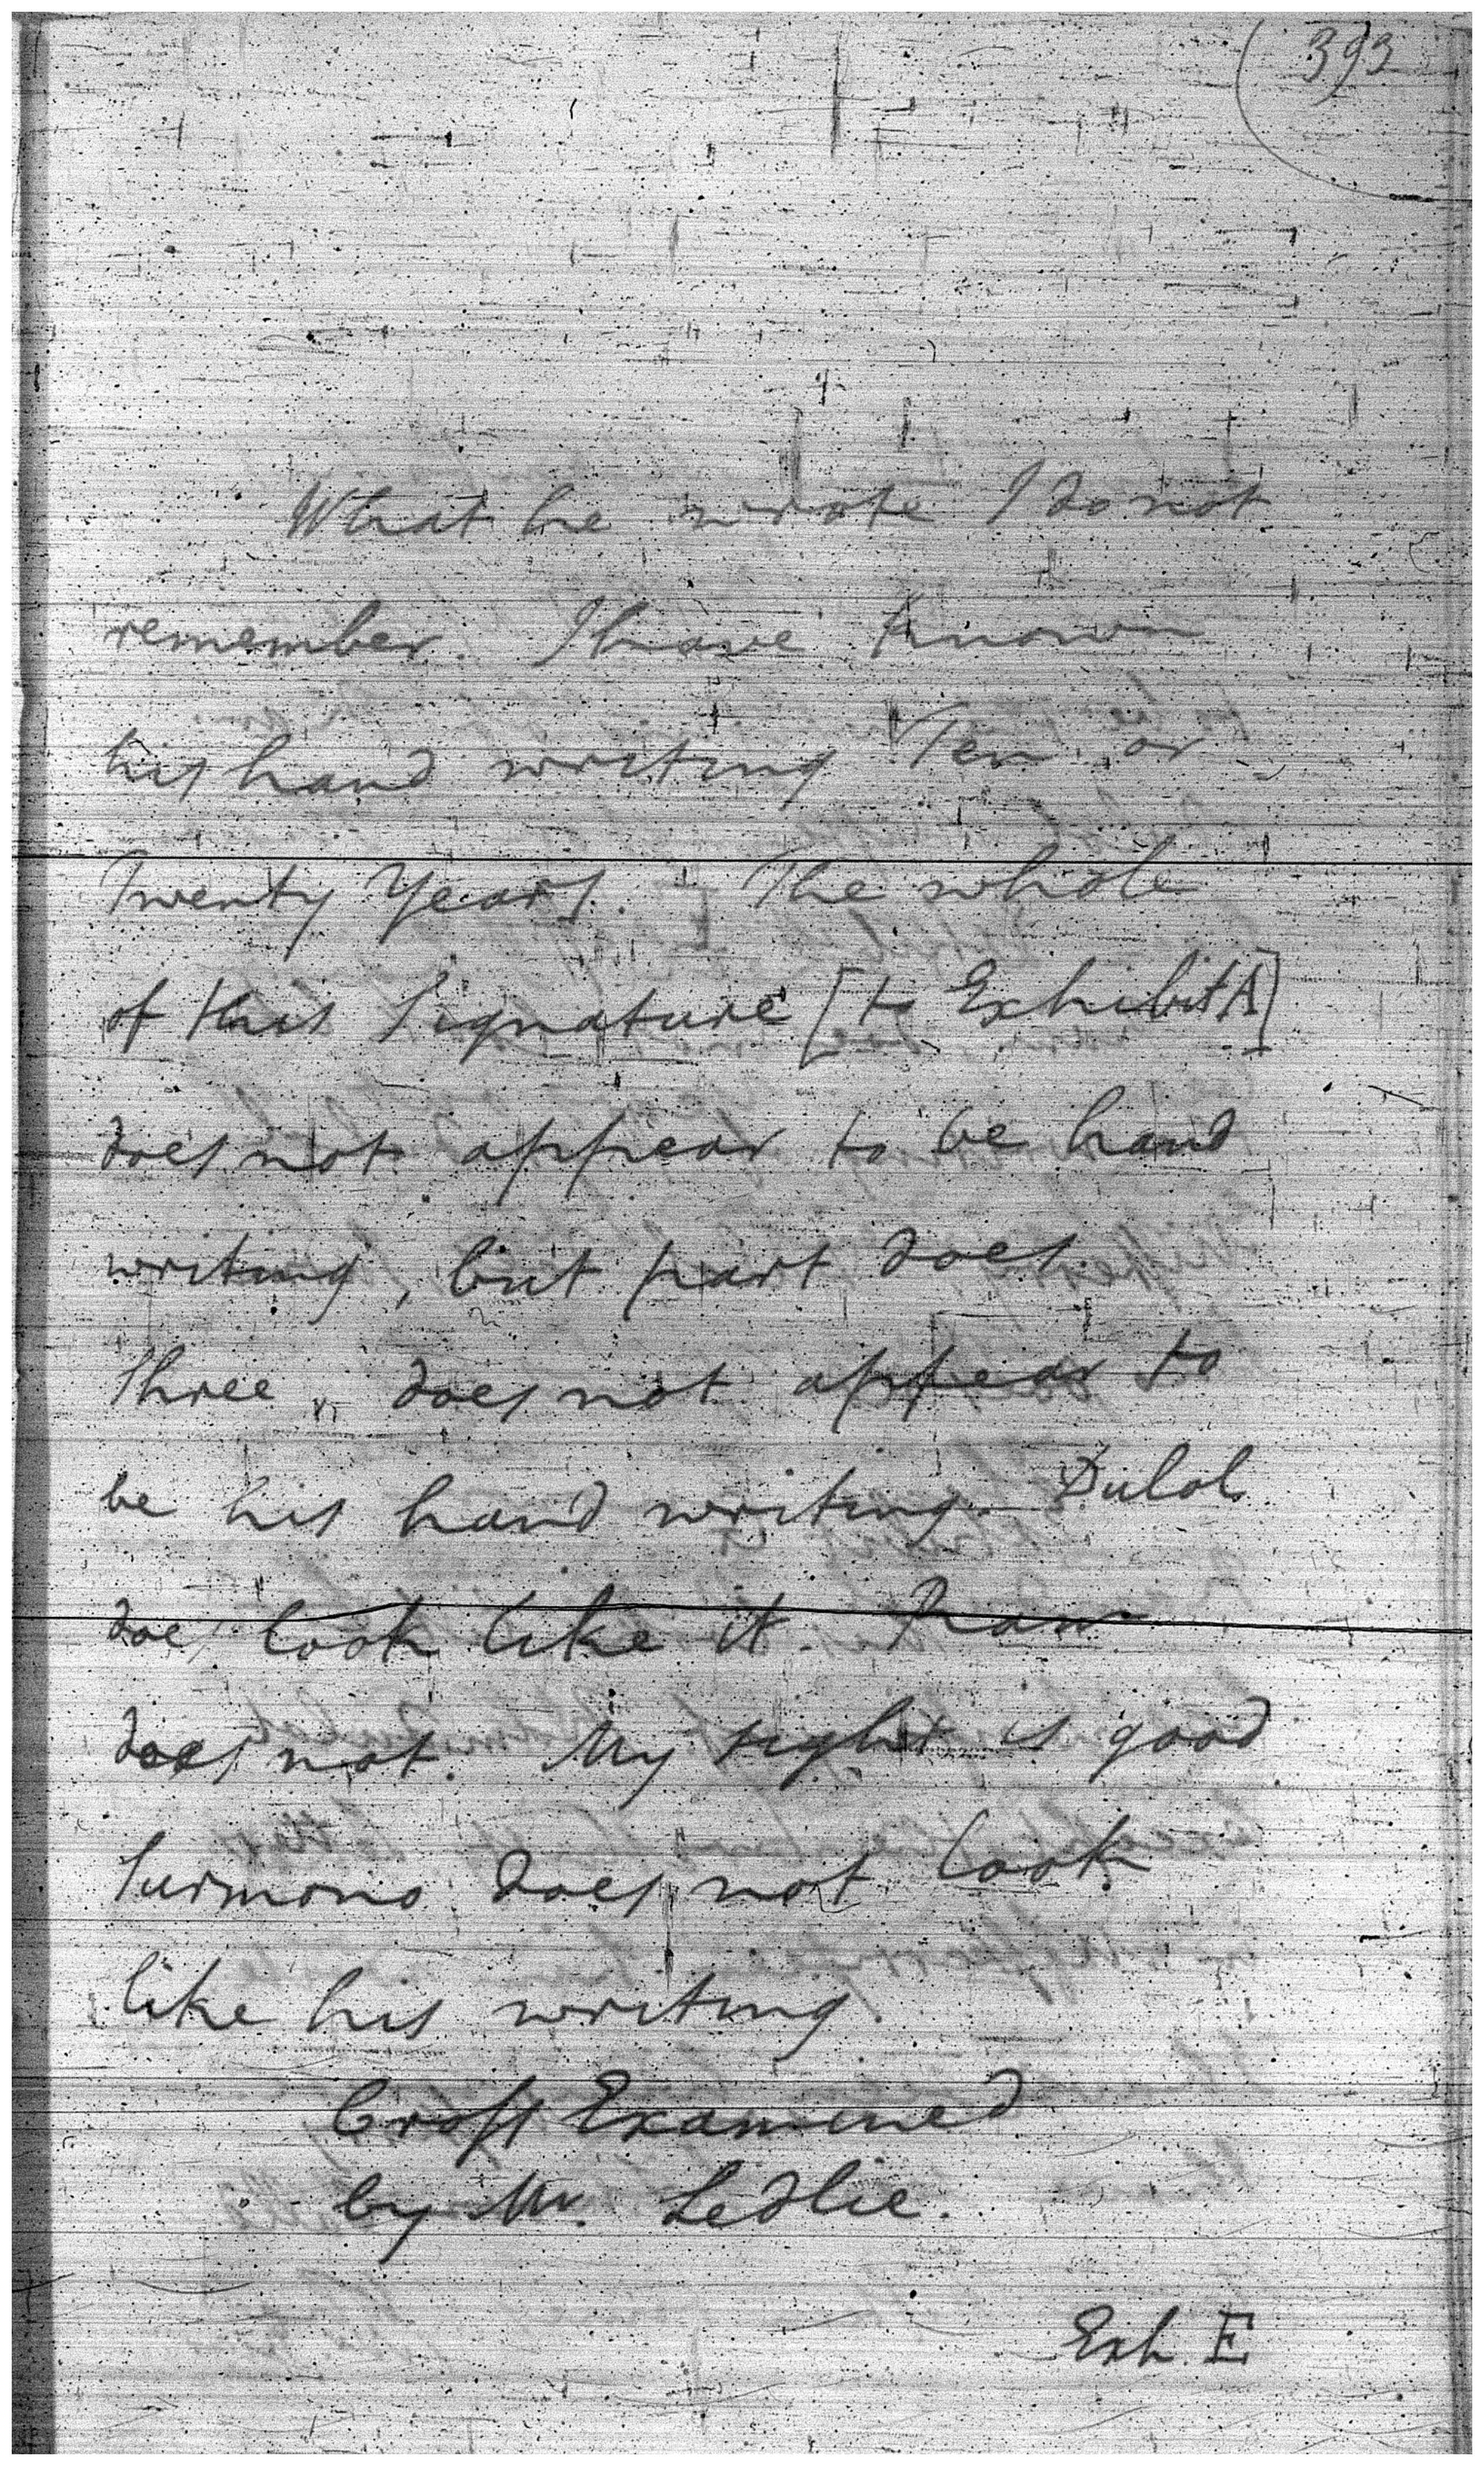 393
What he wrote I do not
remember. I have known
his hand writing Ten or
Twenty Years. The whole
of this Signature [to Exhibit A]
does not appear to be hand
writing, but part does.
Three does not appear to
be his hand writing. Dulol
does look like it. Ram
does not. My sight is good
Surmono does not look
like his writing.
Cross Examined
by Mr. Ledlie.
Exh. E